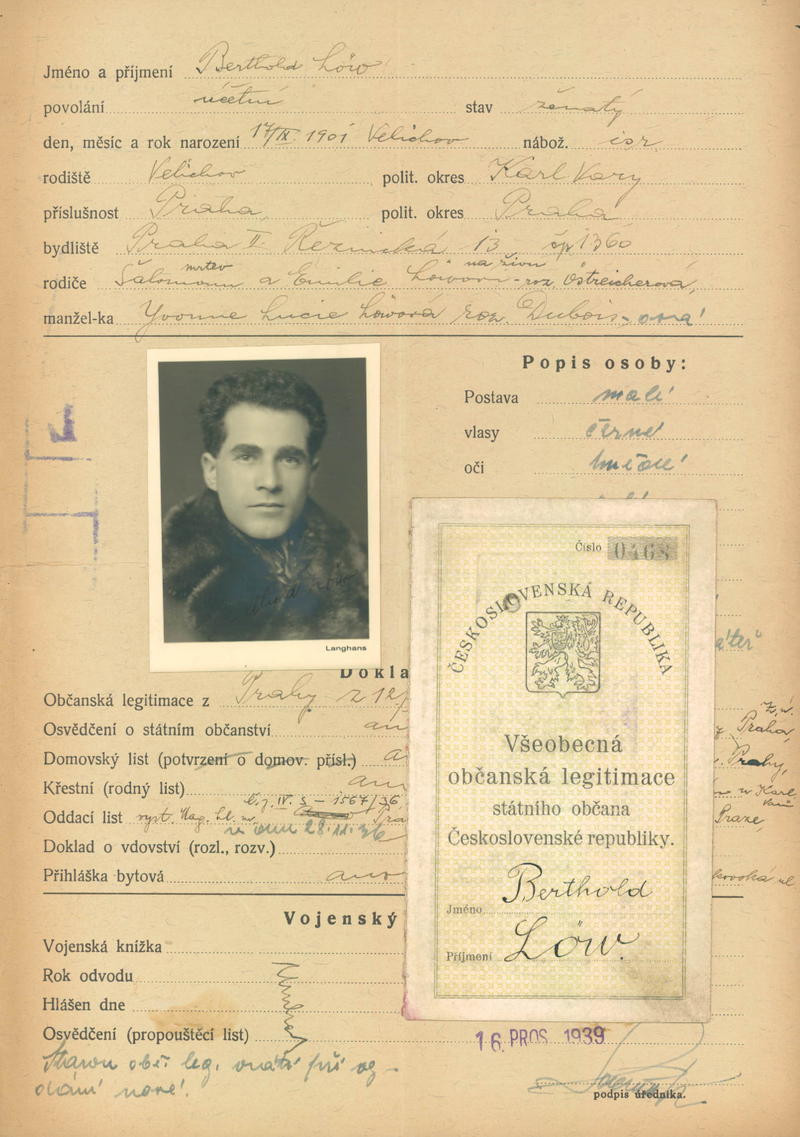 Jméno a příjmení Berthold Löw
povolání účetní stav ženatý
den, měsíc a rok narození 17/IX. 1901 Velichov nábož. isr.
rodiště Velichov polit. okres Karl. Vary
příslušnost Praha polit. okres Praha
bydliště Praha II. Řeznická 13 čp 1360
mrtev na živu
rodiče Šalomoun a Emilie Löwová roz. Östreicherová,
manžel-ka Yvonne Lucie Löwová roz. Dubois-ová
Popis osoby:
Postava malá
vlasy černé
oči hnědé
Langhans
Číslo 0468
ČESKOSLOVENSKÁ REPUBLIKA
Všeobecná
občanská legitimace
státního občana
Československé republiky.
Berthold
Jméno
Löw.
Příjmení
Dokla
Občanská legitimace z Prahy z 12/
Osvědčení o státním občanství an
Praha,
Domovský list (potvrzení o domov. přísl.) a
Prahy,
Křestní (rodný list) an
w Karl
č. j. IV. 3 - 1567/36
Oddací list vyst. Mag. hl. m. Pra
Praze,
ze dne 28.11.36
Doklad o vdovství (rozl., rozv.)
Přihláška bytová ano
Vojenský
Vojenská knížka
Rok odvodu
Hlášen dne
Osvědčení (propouštěcí list)
16. PROS. 1939
Starou obč. leg. vrátí při vy-
dání nové!
podpis úředníka.